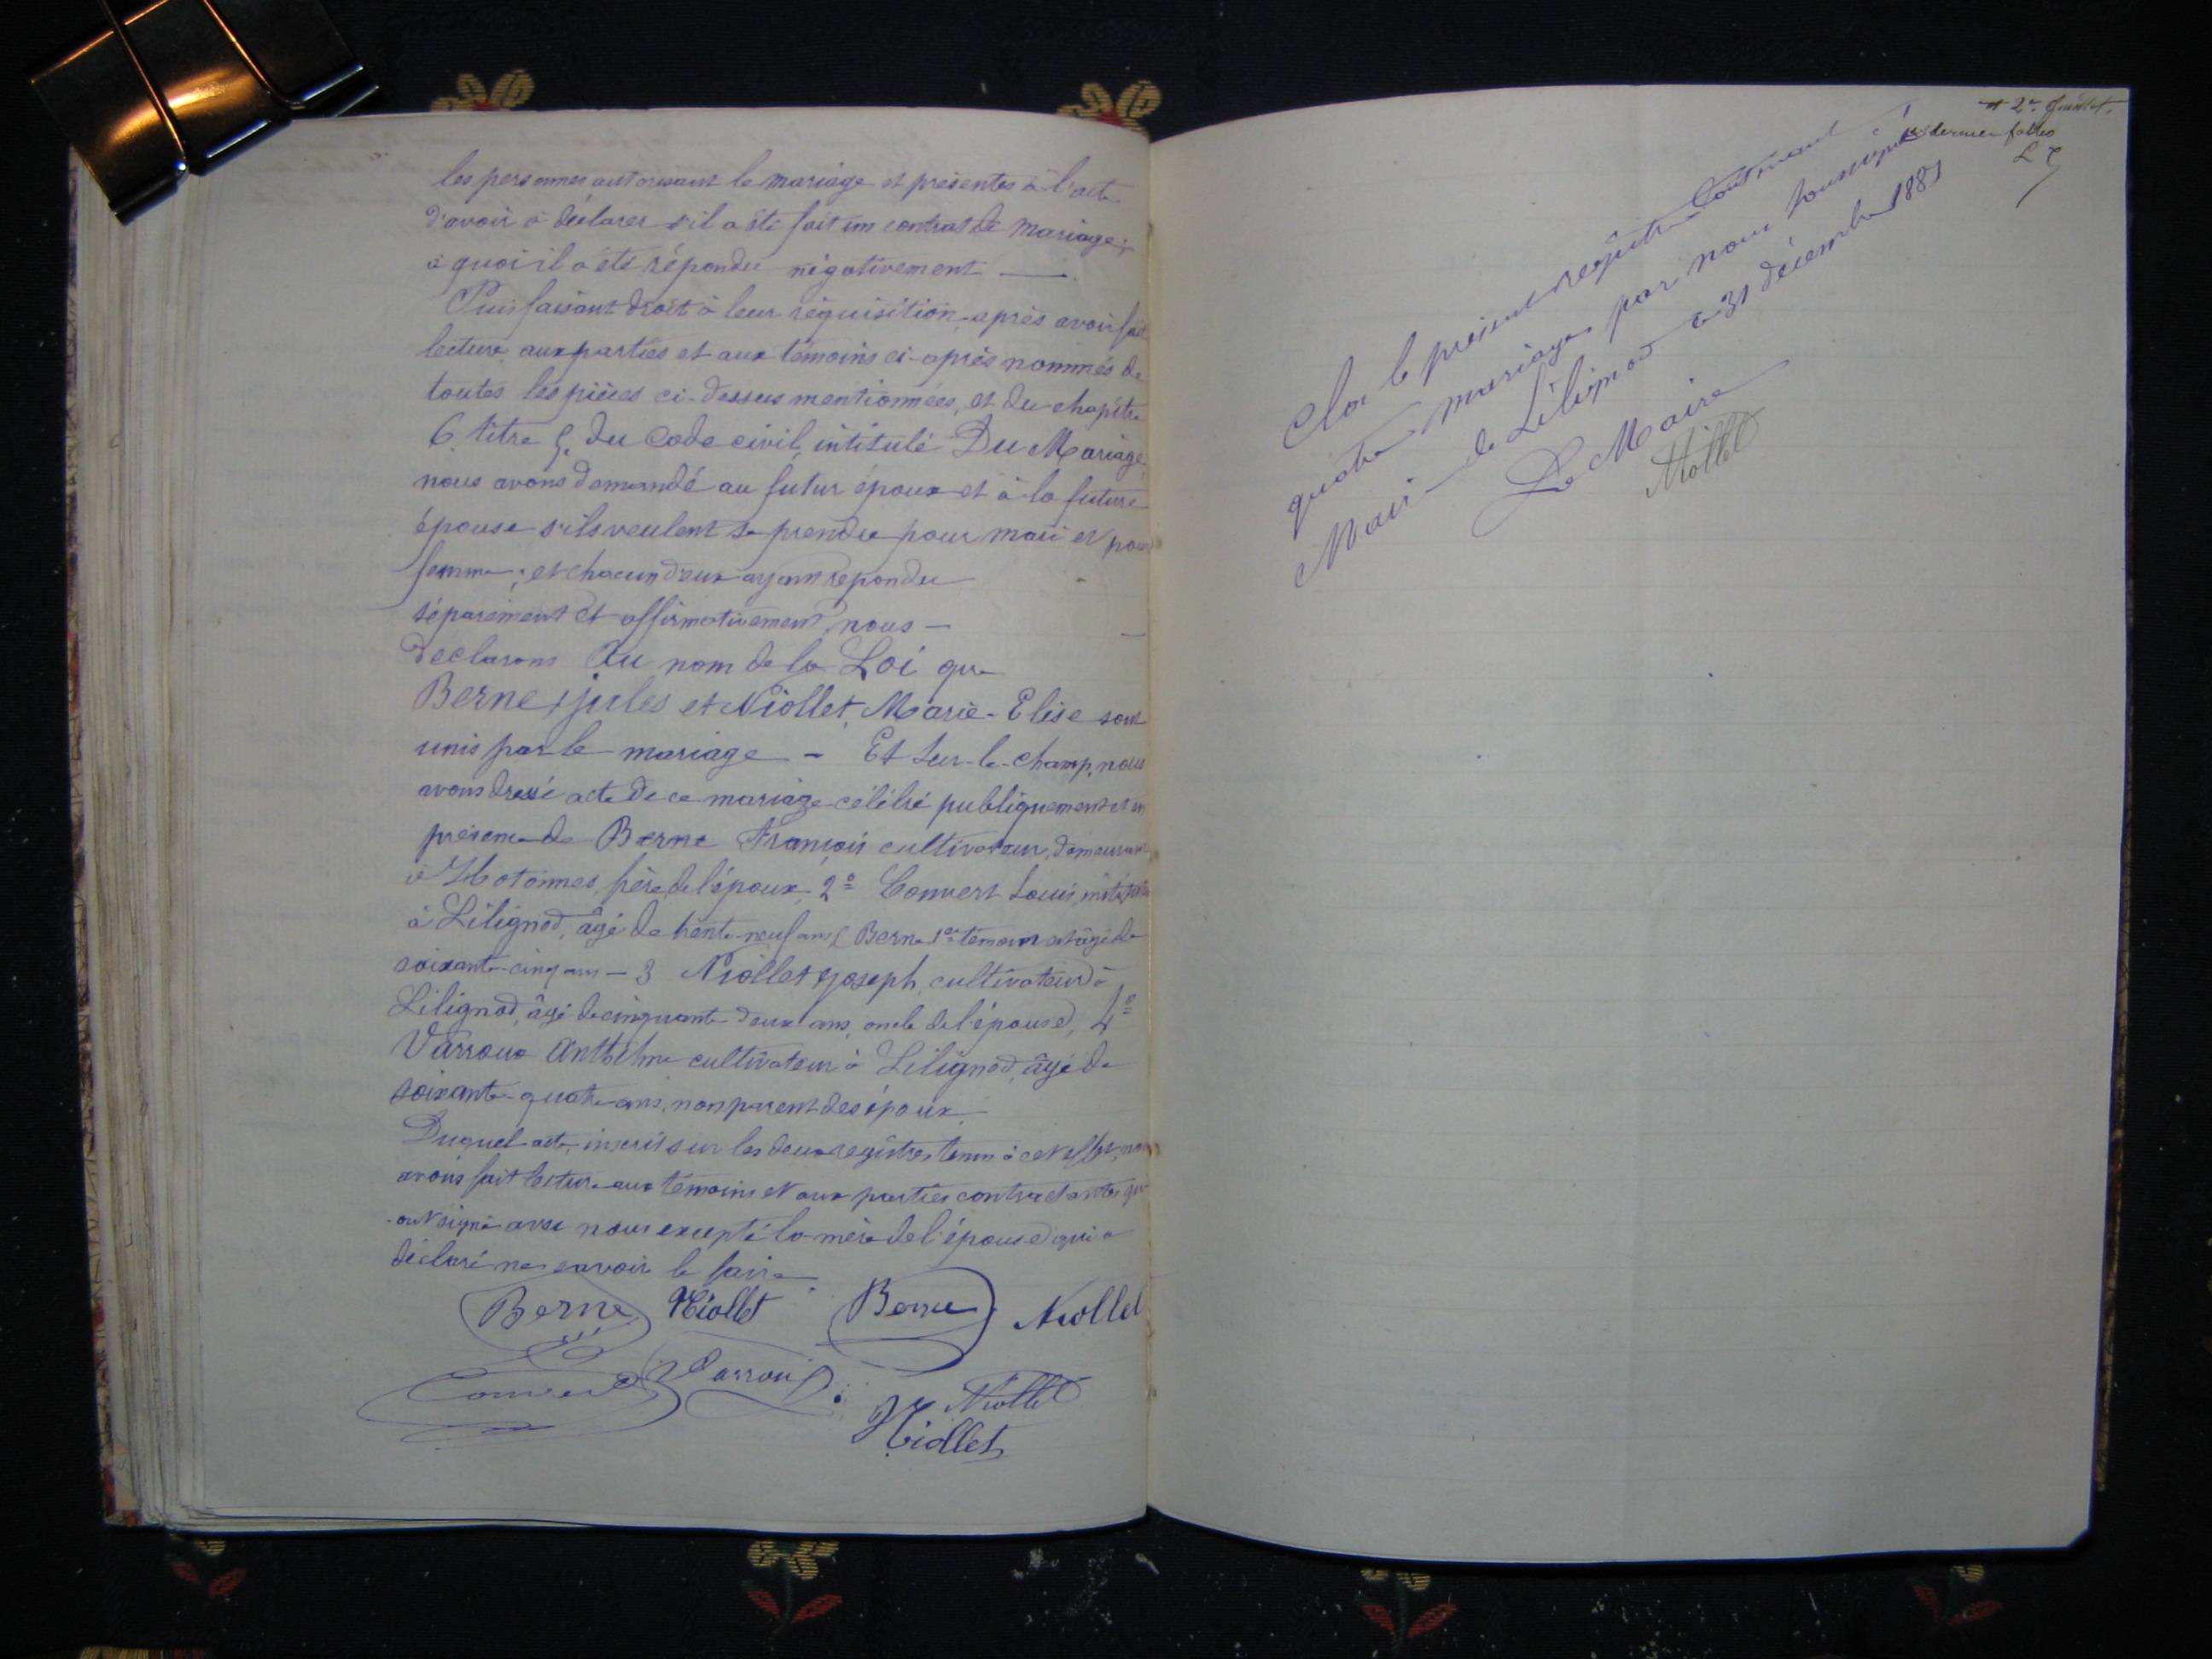 les personnes autorisant le mariage et présentes à l'acte
d'avoir à déclarer s'il a été fait un contrat de mariage;
à quoi il a été répondu négativement —
Puis faisant droit à leur réquisition, après avoir fait
lecture aux parties et aux témoins ci-après nommés de
toutes les pièces ci-dessus mentionnées, et du chapitre
6 titre 5. du Code civil, intitulé Du Mariage,
nous avons demandé au futur époux et à la future
épouse s'ils veulent se prendre pour mari et pour
femme; et chacun d'eux ayant répondu
séparément et affirmativement, nous —
déclarons Au nom de la Loi que
Berne, jules et Niollet, Marie-Elise sont
unis par le mariage — Et sur-le-champ, nous
avons dressé acte de ce mariage célébré publiquement et en
présence de Berne François cultivateur, demeurant
à Hotonnes, frère de l'époux, 2º Convert Louis, instituteur
à Lilignod, âgé de trente-neuf ans (Berne 1er témoin est âgé de
soixante-cinq ans — 3 Niollet Joseph, cultivateur à
Lilignod, âgé de cinquante-deux ans, oncle de l'épouse, 4º
Varroux Anthelme cultivateur à Lilignod, âgé de
soixante-quatre ans, non parent des époux
Duquel acte, inscrit sur les deux registres tenus à cet effet, nous
avons fait lecture aux témoins et aux parties contractantes qui
ont signé avec nous excepté la mère de l'épouse qui a
déclaré ne savoir le faire
Berne Niollet Berne Niollet
Convert Varroux Niollet
Niollet
2e feuillet
dernier folio
Clos le présent registre contenant
quatre mariages par nous soussigné
Maire de Lilignod ce 31 décembre 1881
Le Maire
Niollet